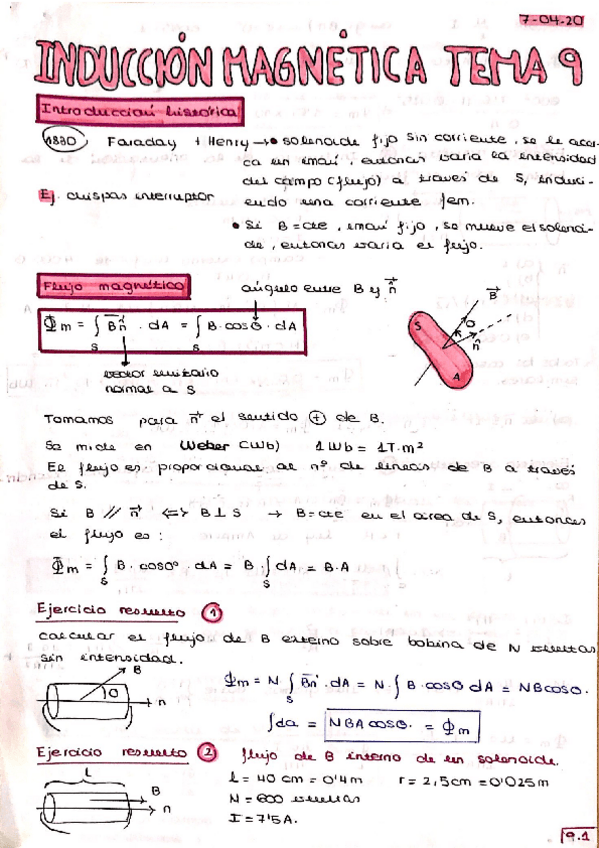 7-04.20
INDUCCIÓN MAGNÉTICA TEMA 9
Introducción histórica
1830 Faraday + Henry → • solenoide fijo sin corriente, se le acer-
ca un imán, entonces varia la intensidad
del campo (flujo) a través de S, induci-
Ej. chispas interruptor endo una corriente fem.
• Si B = cte, imán fijo, se mueve el solenoi-
de, entonces varia el flujo.
Flujo magnético ángulo entre B y n⃗
Φm = ∫S B⃗n⃗ · dA = ∫S B · cosθ · dA
vector unitario
normal a S
B⃗
S
θ
n⃗
A
Tomamos para n⃗ el sentido ⊕ de B.
Se mide en Weber (Wb) 1Wb = 1T·m²
El flujo es proporcional al nº de lineas de B a través
de S.
Si B // n⃗ <=> B⊥S → B=cte en el área de S, entonces
el flujo es:
Φm = ∫S B · cos0° · dA = B · ∫S dA = B·A
Ejercicio resuelto 1
calcular el flujo de B externo sobre bobina de N vueltas
sin intensidad.
B
θ
n
Φm = N · ∫S B⃗n⃗ · dA = N · ∫ B · cosθ dA = NBcosθ.
∫da = NBAcosθ. = Φm
Ejercicio resuelto 2 flujo de B interno de un solenoide.
L
B
n
L = 40 cm = 0'4m r = 2,5cm = 0'025m
N = 600 vueltas
I = 7'5A.
9.1